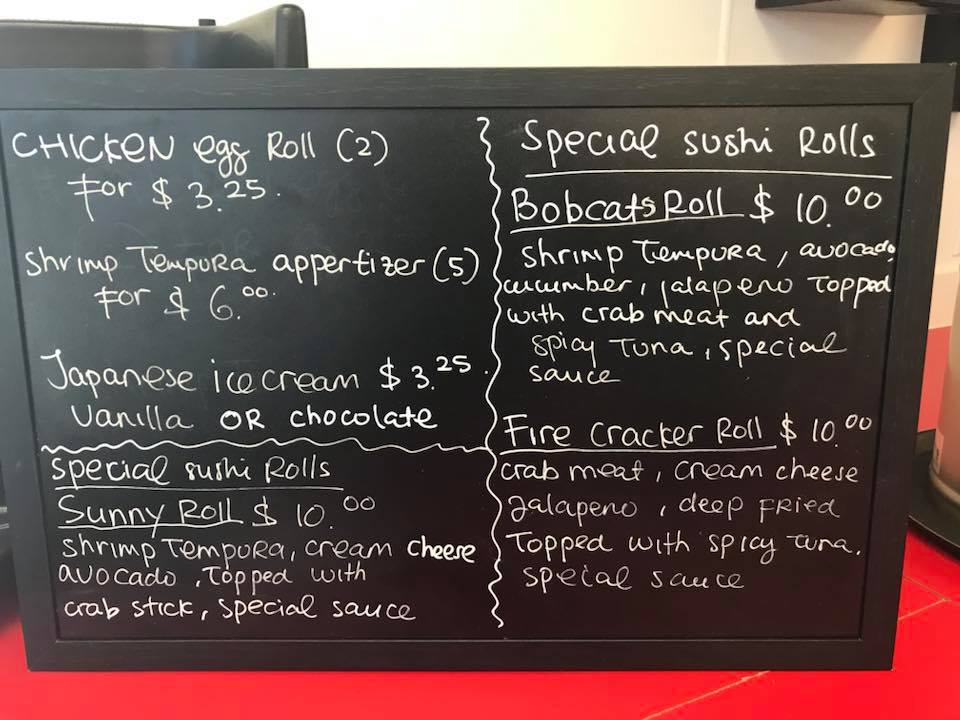 CHICKEN egg Roll (2)
For $ 3.25.
Shrimp Tempura appertizer (5)
For $ 6.00
Japanese ice cream $ 3.25.
Vanilla OR chocolate
special sushi Rolls
Sunny Roll $ 10.00
shrimp Tempura, cream cheese
avocado, Topped with
crab stick, special sauce
Special sushi Rolls
Bobcats Roll $ 10.00
Shrimp Tempura, avocado,
cucumber, jalapeno Topped
with crab meat and
spicy Tuna, special
sauce
Fire Cracker Roll $ 10.00
crab meat, cream cheese
Jalapeno, deep FRied
Topped with spicy Tuna.
special sauce